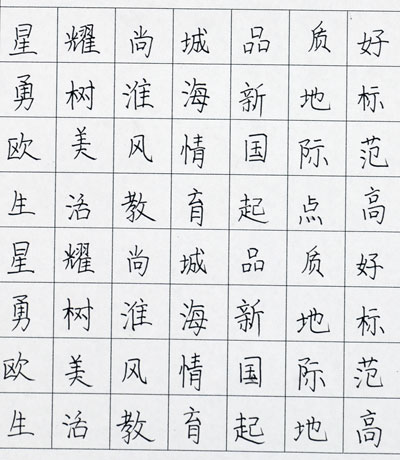 星耀尚城品质好
勇树淮海新地标
欧美风情国际范
生活教育起点高
星耀尚城品质好
勇树淮海新地标
欧美风情国际范
生活教育起地高